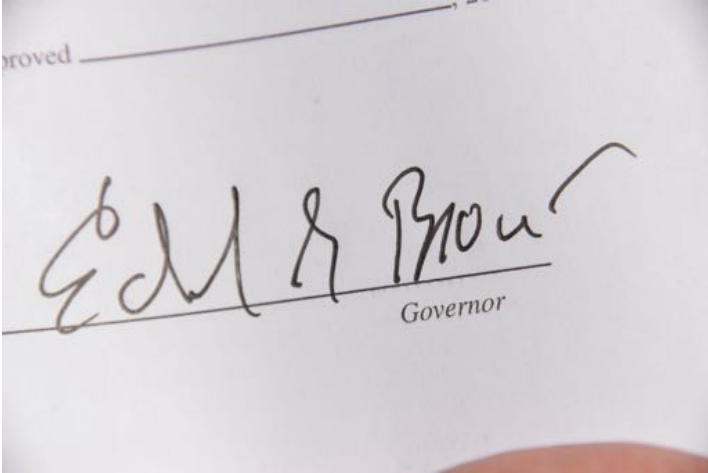 proved ____________, 2
Edd G Brown
Governor